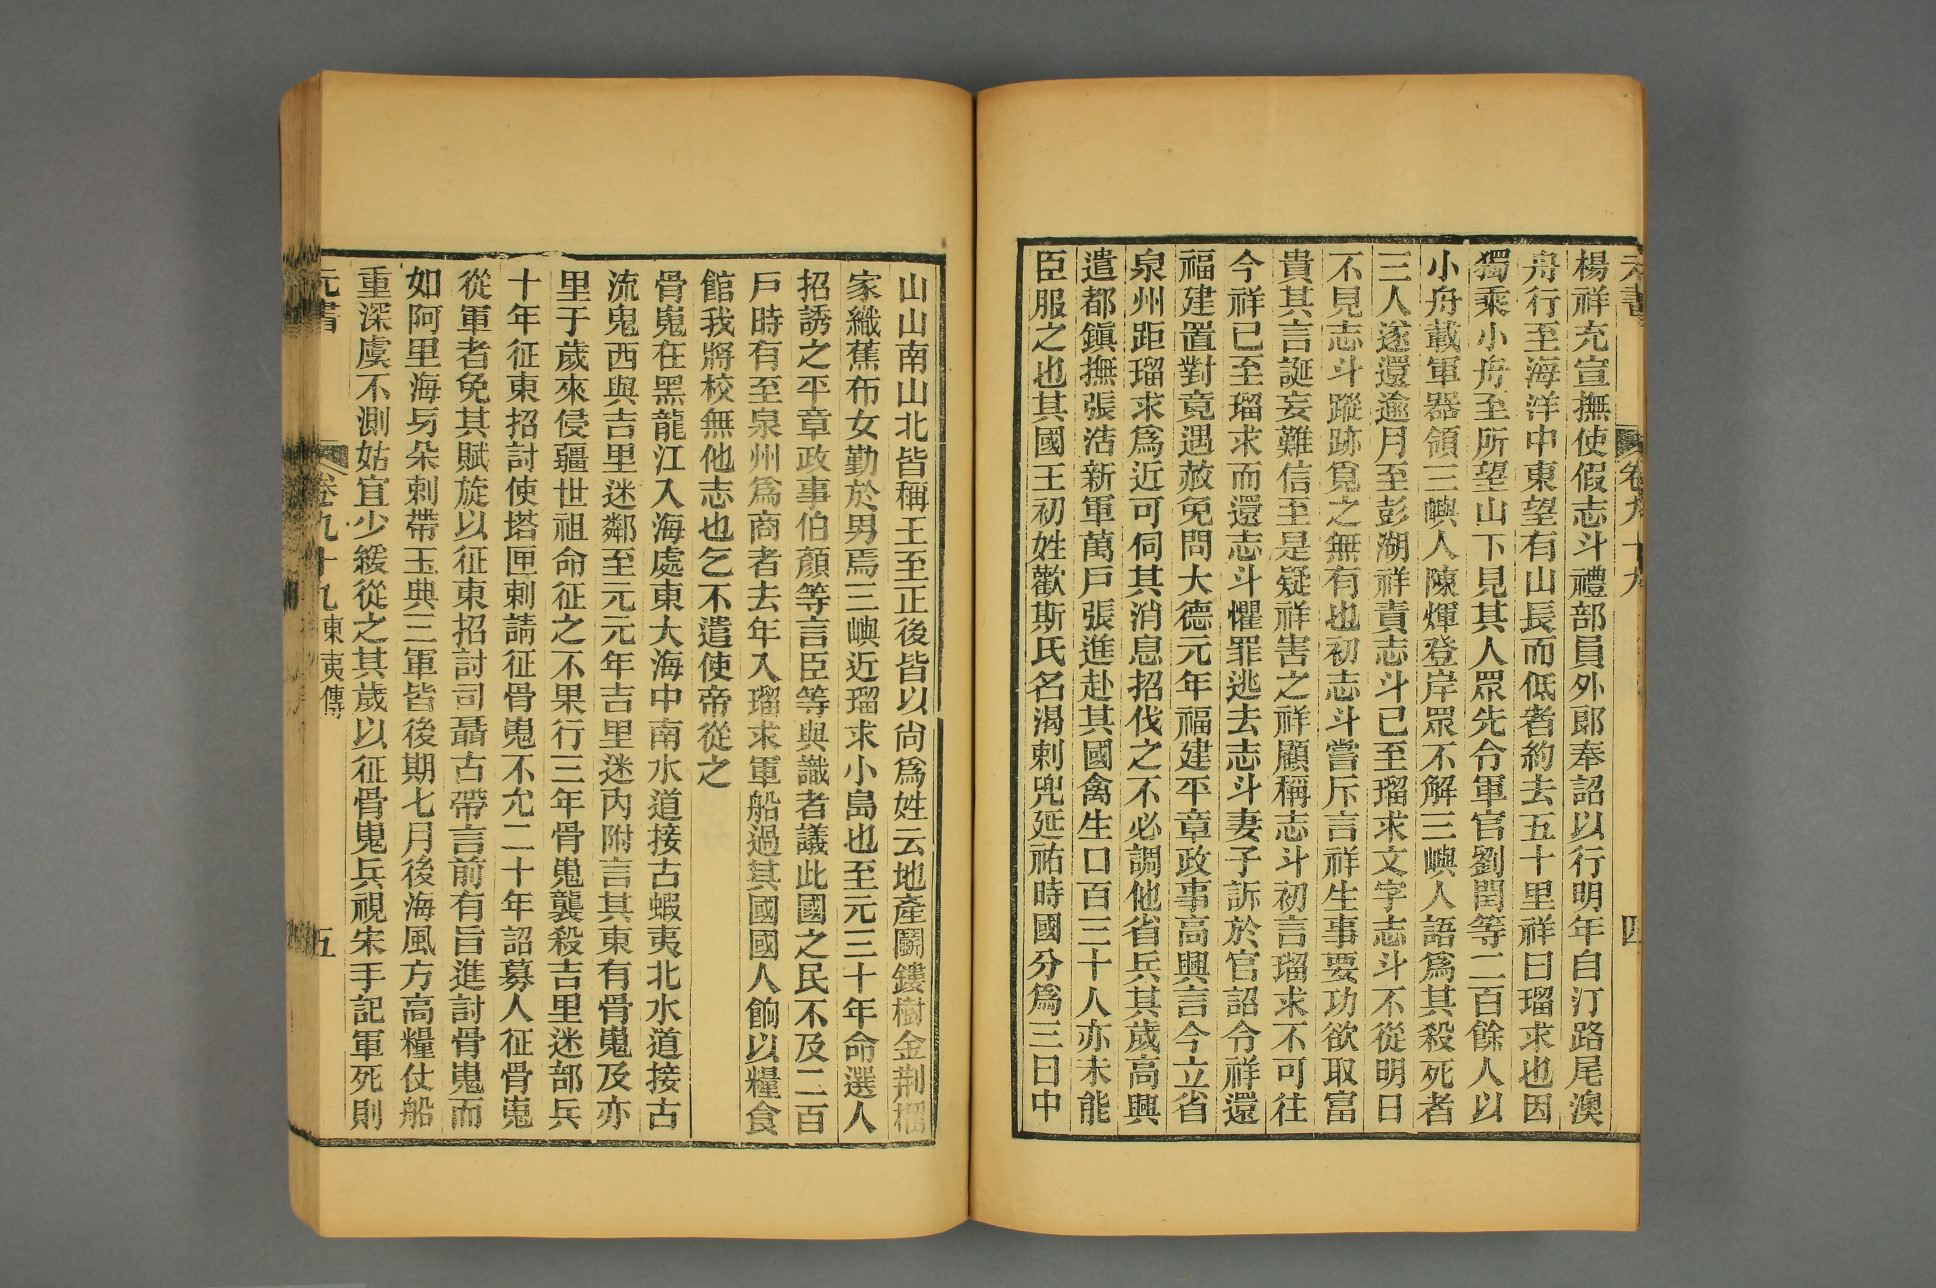 元書 卷九十九 四
楊祥充宣撫使假志斗禮部員外郎奉詔以行明年自汀路尾澳
舟行至海洋中東望有山長而低者約去五十里祥曰瑠求也因
獨乘小舟至所望山下見其人眾先令軍官劉閏等二百餘人以
小舟載軍器領三嶼人陳煇登岸眾不解三嶼人語爲其殺死者
三人遂還逾月至彭湖祥責志斗已至瑠求文字志斗不從明日
不見志斗蹤跡覓之無有也初志斗嘗斥言祥生事要功欲取富
貴其言誕妄難信至是疑祥害之祥顧稱志斗初言瑠求不可往
今祥已至瑠求而還志斗懼罪逃去志斗妻子訴於官詔令祥還
福建置對竟遇赦免問大德元年福建平章政事高興言今立省
泉州距瑠求爲近可伺其消息招伐之不必調他省兵其歲高興
遣都鎮撫張浩新軍萬戶張進赴其國禽生口百三十人亦未能
臣服之也其國王初姓歡斯氏名渴剌兜延祐時國分爲三曰中
山山南山北皆稱王至正後皆以尚爲姓云地產鬬鏤樹金荆榲
家織蕉布女勤於男焉三嶼近瑠求小島也至元三十年命選人
招誘之平章政事伯顏等言臣等與識者議此國之民不及二百
戶時有至泉州爲商者去年入瑠求軍船過其國國人餉以糧食
館我將校無他志也乞不遣使帝從之
骨嵬在黑龍江入海處東大海中南水道接古蝦夷北水道接古
流鬼西與吉里迷鄰至元元年吉里迷內附言其東有骨嵬及亦
里于歲來侵疆世祖命征之不果行三年骨嵬襲殺吉里迷部兵
十年征東招討使塔匣剌請征骨嵬不允二十年詔募人征骨嵬
從軍者免其賦旋以征東招討司聶古帶言前有旨進討骨嵬而
如阿里海另朵剌帶玉典三軍皆後期七月後海風方高糧仗船
重深虞不測姑宜少緩從之其歲以征骨嵬兵視宋手記軍死則
元書 卷九十九 東夷傳 五